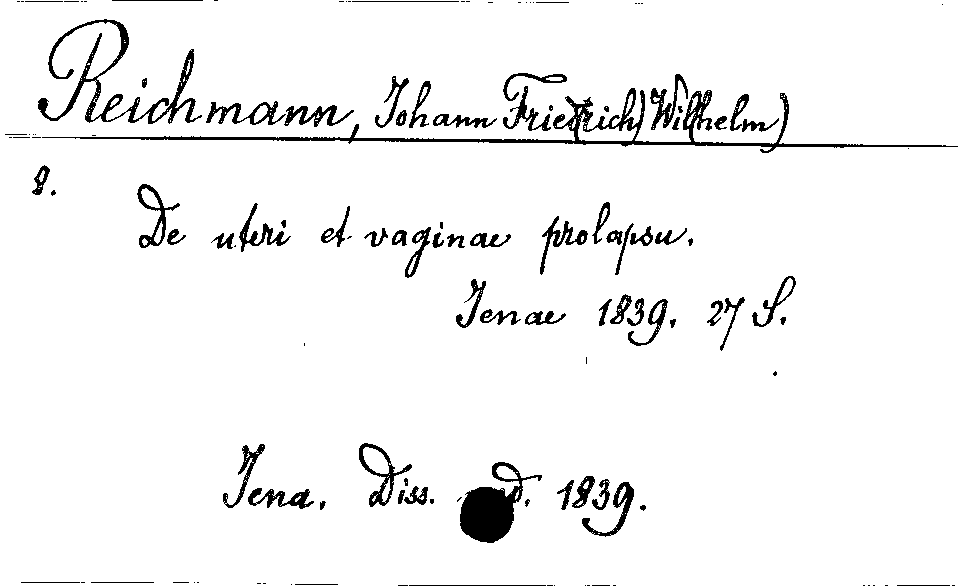 Reichmann, Johann Fried(rich) Wil(helm)
8.
De uteri et vaginae prolapsu.
Jenae 1839. 27 S.
Jena. Diss. 1839.